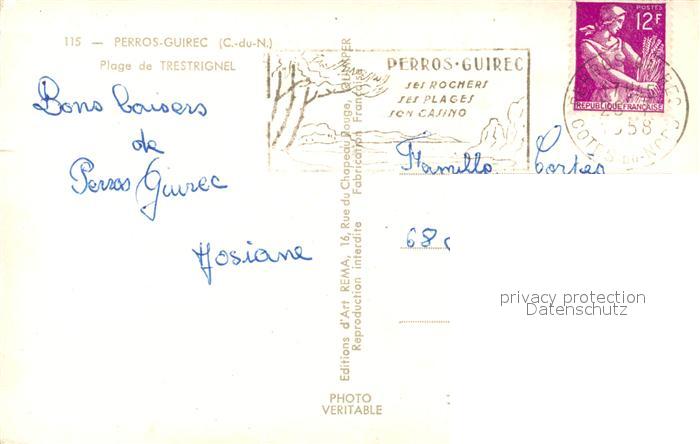 115 — PERROS-GUIREC (C.-du-N.)
Plage de TRESTRIGNEL
Bons baisers
de
Perros Guirec
Josiane
PERROS-GUIREC
SES ROCHERS
SES PLAGES
SON CASINO
POSTES
12F
REPUBLIQUE FRANÇAISE
1958
COTES-DU-NORD
Famille Cortès
68
Editions d'Art REMA, 16, Rue du Chapeau Rouge, QUIMPER
Reproduction interdite Fabrication Française
PHOTO
VERITABLE
privacy protection
Datenschutz